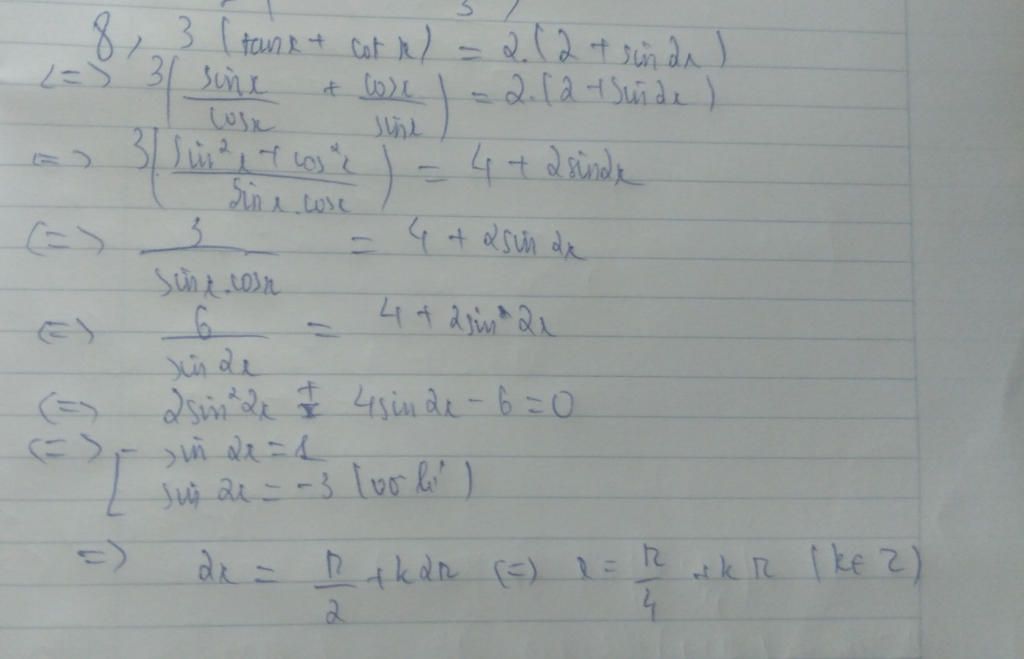 8, 3 (tanx + cot x) = 2.(2 + sin 2x)
<=> 3(sinx/cosx + cosx/sinx) = 2.(2 + sin 2x)
=> 3(sin²x + cos²x / sinx.cosx) = 4 + 2sin2x
(=) 3/sinx.cosx = 4 + 2sin 2x
(=) 6/sin 2x = 4 + 2sin 2x
(=) 2sin²2x + 4sin 2x - 6 = 0
(=) [ sin 2x = 1
sin 2x = -3 (vô lí)
=) 2x = π/2 + k2π (=) x = π/4 + kπ (k∈Z)